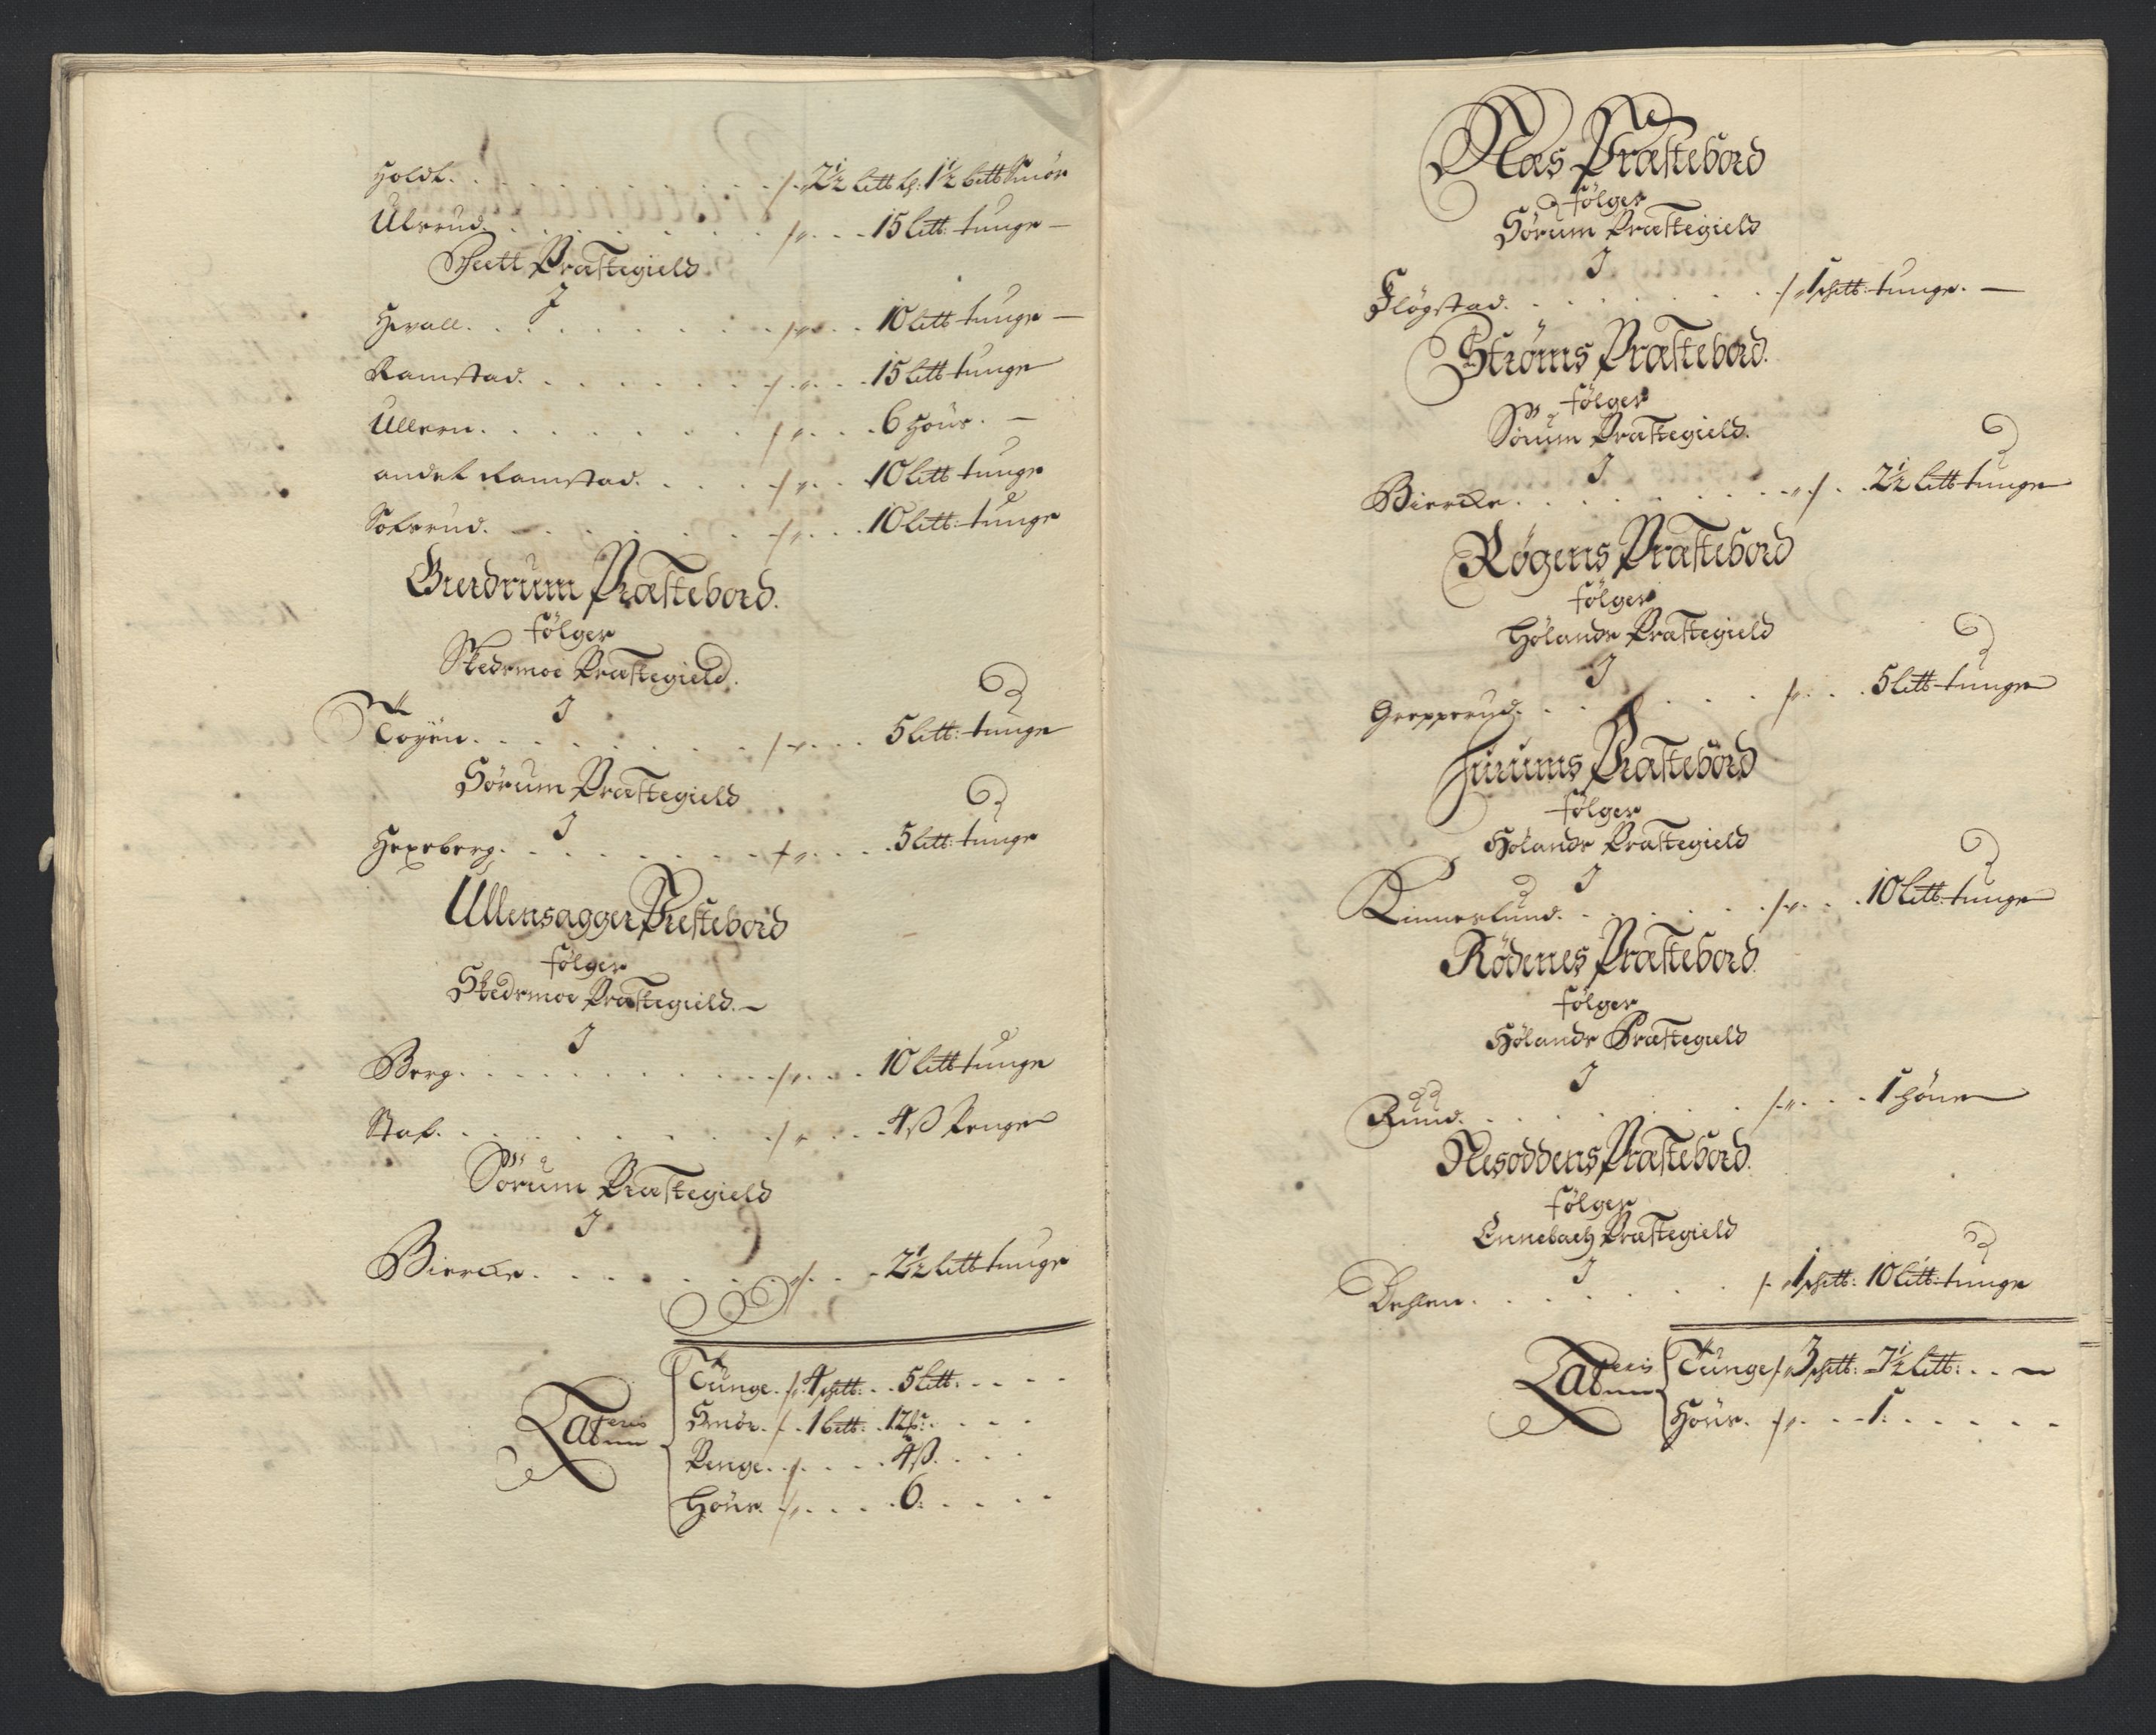 Holdt. . . . . . . . . 2½ litt tg: 1½ bitt Smör
Ulerud. . . . . . . . 15 litt: tunge —
Feett Præstegield
I
Herall. . . . . . . . 10 litt tunge —
Ramstad. . . . . . . 15 litt tunge
Ullern. . . . . . . . 6 Höns. —
andet Ramstad. . . . . 10 litt tunge
Solerud. . . . . . . . 10 litt: tunge
Gierdrum Præstebord.
følger
Skedsmoe Præstegield.
I
Toyen. . . . . . . . 5 litt: tunge
Sörum Præstegield
I
Hexeberg. . . . . . . 5 litt: tunge
Ullensagger Præstebord
følger
Skedsmoe Præstegield. —
I
Berg. . . . . . . . . 10 litt tunge
Staf. . . . . . . . . 4 ß Penge
Sörum Præstegield
I
Biercke. . . . . . . . 2½ litt tunge
Lateris
Tunge. . 4 schtt: . 5 litt. . . .
Smör. . 1 bitt: . 12 . . . .
Penge. . . . . 4 ß. . . .
Höns. . . . . 6: . . . .
Næs Præstebord
følger
Sörum Præstegield
I
Fløgstad. . . . . . . 1 schtt: tunge. —
Strøms Præstebord.
følger
Sörum Præstegield.
I
Biercke. . . . . . . . 2½ litt tunge
Røgens Præstebord
følger
Hølands Præstegield
I
Grepperud. . . . . . . 5 litt tunge
Hurums Præstebord
følger
Hølands Præstegield
I
Kinnerlund. . . . . . 10 litt: tunge
Rödenes Præstebord
følger
Hølands Præstegield
I
Ruud. . . . . . . . . 1 Höne
Nesoddens Præstebord.
følger
Ennebach Præstegield
I
Dehlen. . . . . . . 1 schtt: 10 litt: tunge
Lateris
Tunge 3 schtt: 7½ litt: . . —
Höns. . . . 1: . . . . .